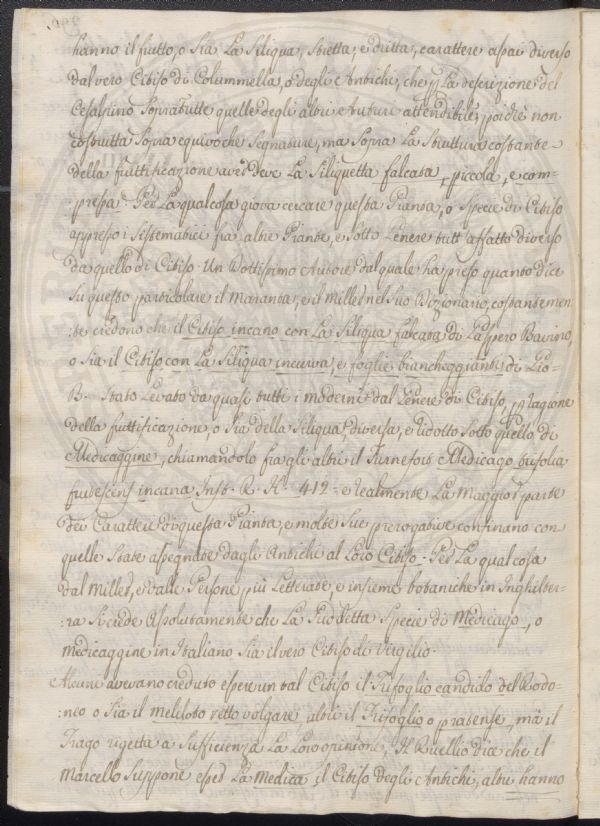 hanno il frutto, o sia La Siliqua, stretta, e dritta, carattere assai diverso
dal vero Citiso di Columnella, o degli Antichi, che p La descrizione del
Cesalpino Sopratutte quelle degli altri Autori attendibile, poichè non
costruitta Sopra equivoche Segnature, ma Sopra La Struttura costante
della fruttificazione aver deve La Siliquetta falcata, piccola, e com-
:pressa. Per La qual cosa giova cercare questa Pianta, o Specie di Citiso
appresso i Sistematici fra altre Piante, e Sotto Genere tutt'affatto diverso
da quello di Citiso. Un Dottissimo Autore dal quale ha preso quanto dice
Su questo particolare il Maranta, e il Miller nel Suo Dizionario, costantemen
:te credono che il Citiso incano con La Siliqua falcata di Gaspero Bauino,
o sia il Citiso con La Siliqua incurva, e foglie biancheggianti di Gio:
B. Stato Levato da quasi tutti i moderni dal Genere di Citiso, p ragione
della fruttificazione, o Sia della Siliqua diversa, e ridotto Sotto quello di
Medicaggine, chiamandolo fra gli altri il Turnefort Medicago trifolia
frutescens incana Inst. R. H. 412 = e realmente La Maggior parte
dei Caratteri di questa Pianta, e molte Sue prerogative confinano con
quelle State assegnate dagli Antichi al Loro Citiso. Per La qual cosa
dal Miller, e dalle Persone più Letterate, e insieme botaniche in Inghilter-
:ra Si crede assolutamente che La Suddetta Specie di Medicago, o
medicaggine in Italiano Sia il vero Citiso di Virgilio.
Alcuni avevano creduto essere un tal Citiso il Trifoglio candido del Dodo-
:neo o Sia il meliloto retto volgare, altri il Trifoglio o pratense, ma il
Trago rigetta a Sufficienza La Loro opinione, Il Ruellio dice che il
Marcello Suppone esser La Medica il Citiso degli Antichi, altri hanno